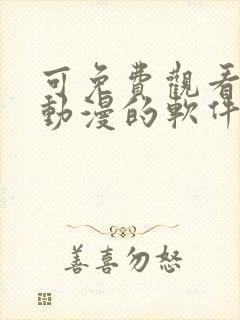 可免費觀看
動漫的軟件
善喜勿怒